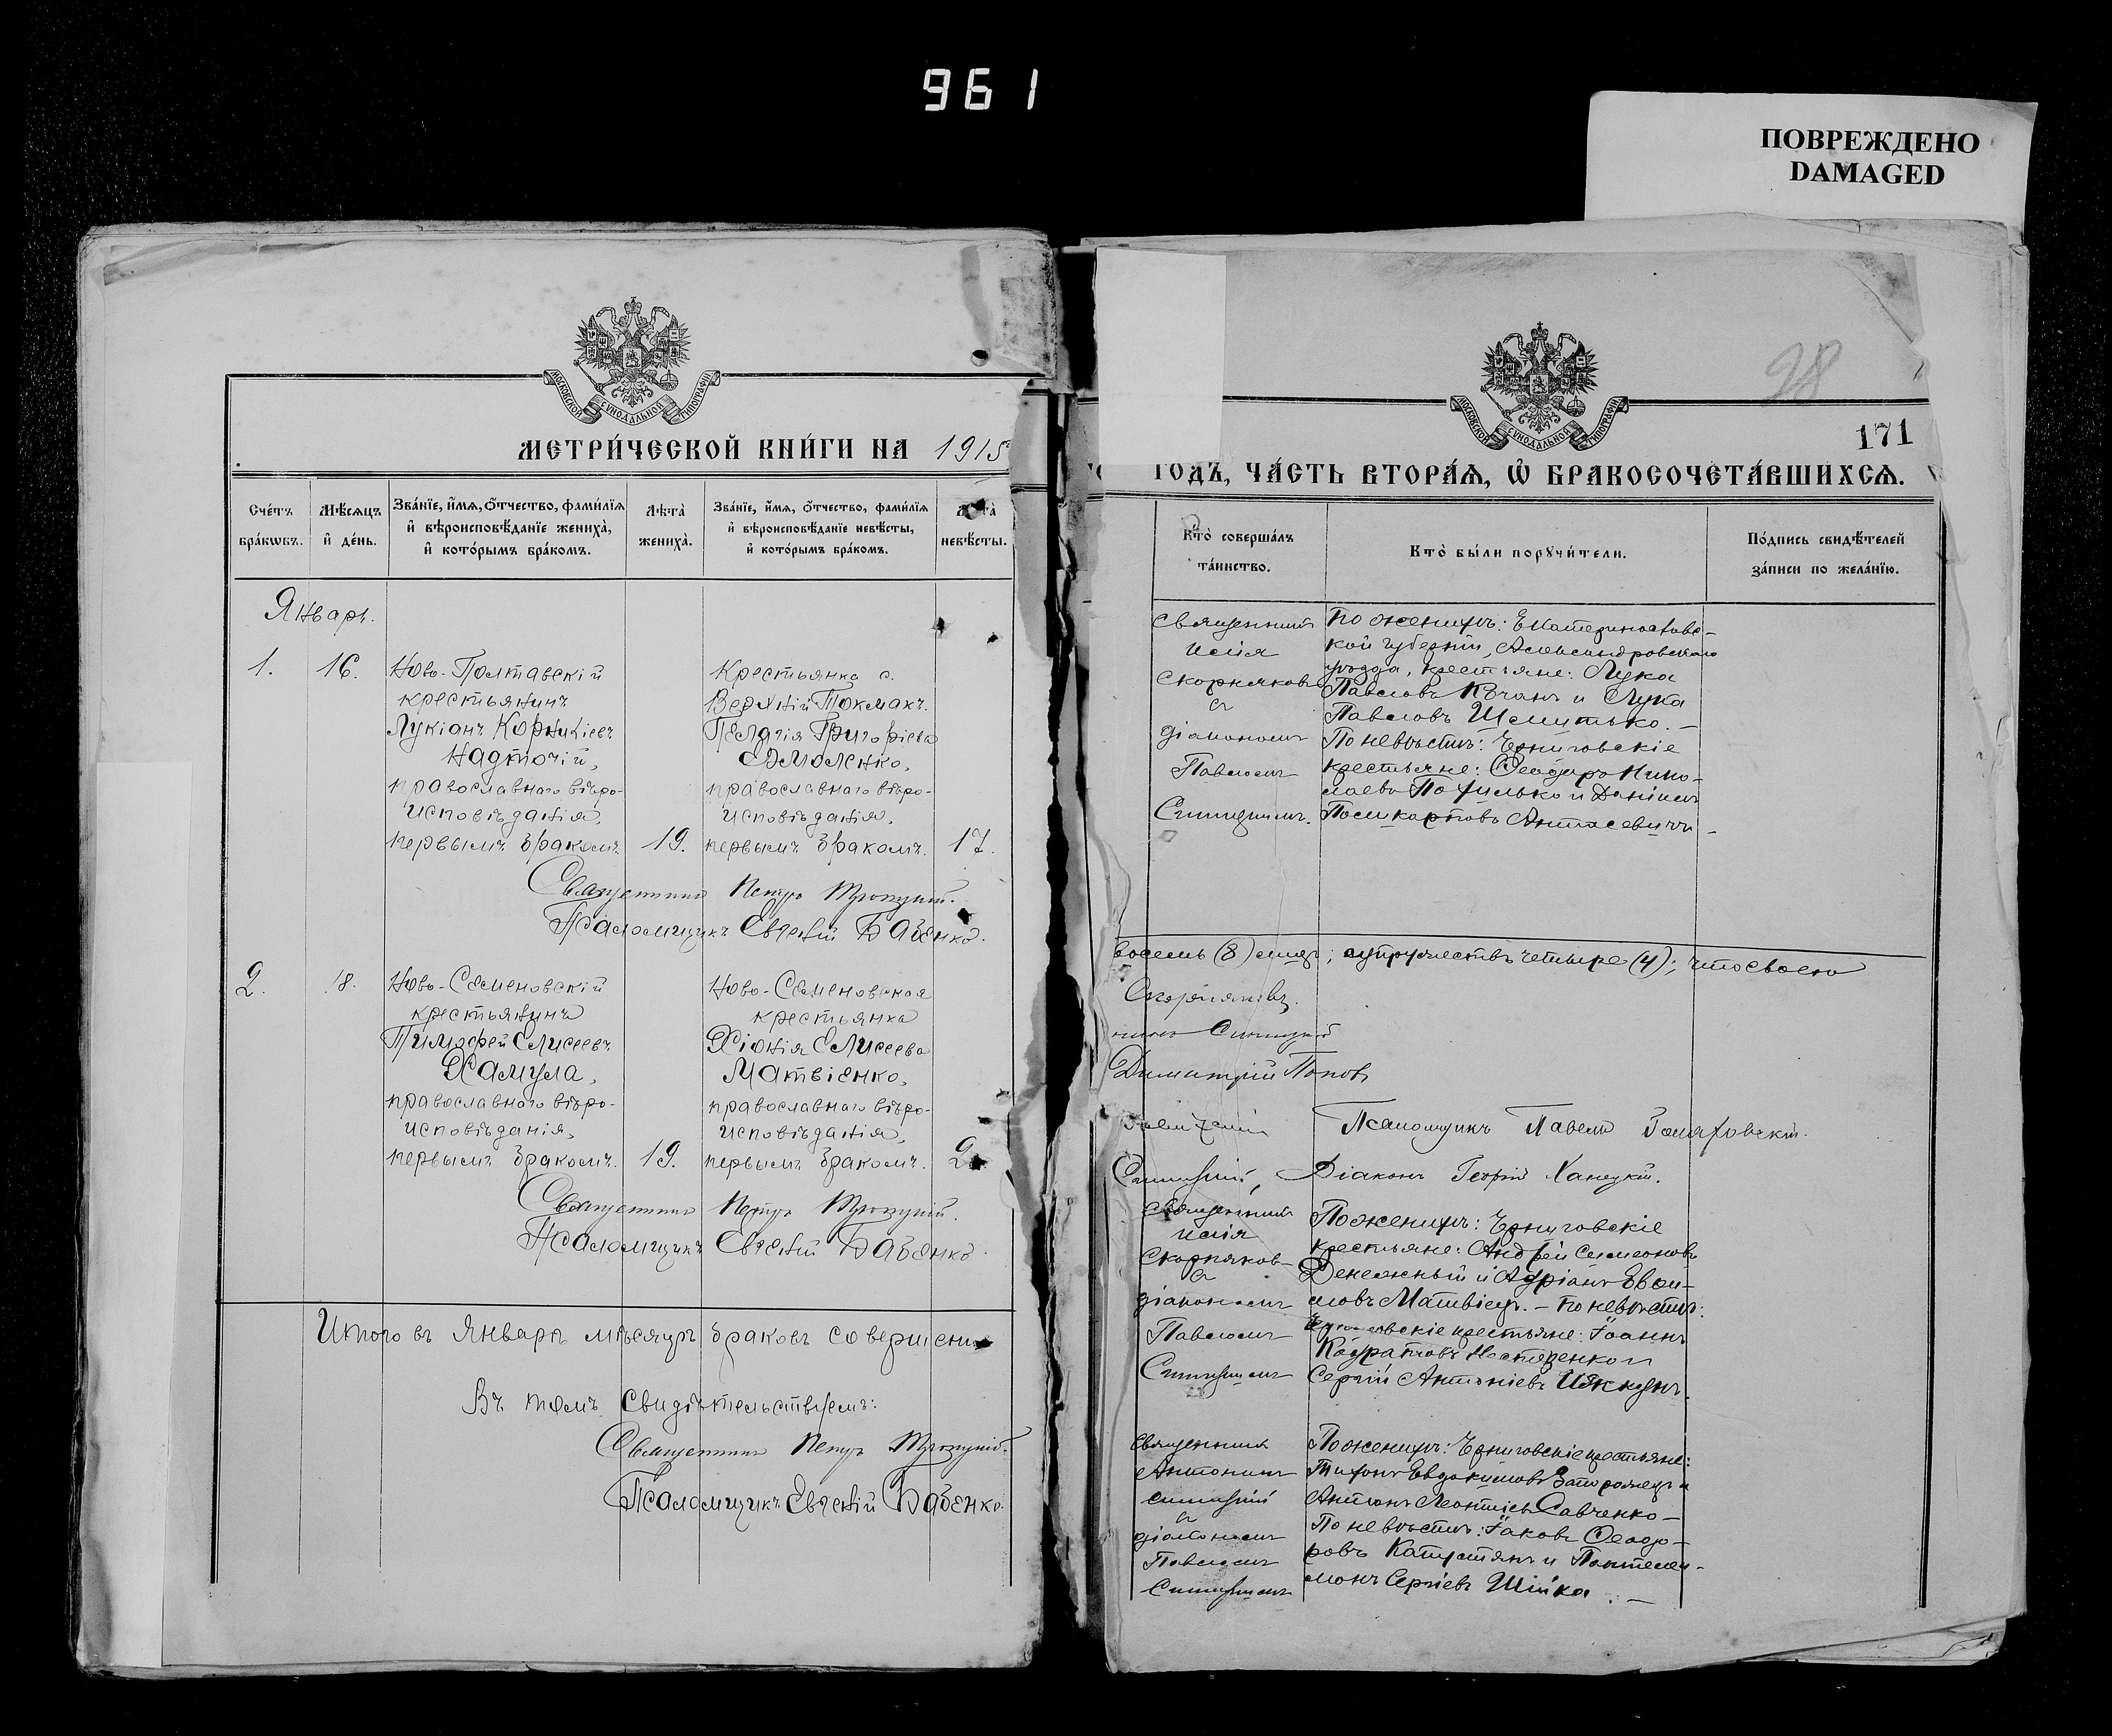 961
ПОВРЕЖДЕНО
DAMAGED
МОСКОВСКОЙ СѴНОДАЛЬНОЙ ТИПОГРАФІИ
МЕТРИ́ЧЕСКОЙ КНИ́ГИ НА 1915
Сче́тъ бра́кωвъ.
Мѣ́сяцъ и҆ де́нь.
Зва́нїе, и҆́мя, ѻ҆́тчество, фами́лїя и҆ вѣроисповѣ́данїе жениха̀, и҆ кото́рымъ бра́комъ.
Лѣта̀ жениха̀.
Зва́нїе, и҆́мя, ѻ҆́тчество, фами́лїя и҆ вѣроисповѣ́данїе невѣ́сты, и҆ кото́рымъ бра́комъ.
невѣ́сты.
Январь.
1. 16.
Ново-Полтавскій
крестьянинъ
Лукіонъ Корникіевъ
Надточій,
православнаго вѣро-
исповѣданія,
первымъ бракомъ. 19.
Крестьянка с.
Верхній Токмакъ.
Пелагія Григоріева
Ермоленко,
православнаго вѣро-
исповѣданія,
первымъ бракомъ. 17.
Священникъ Петръ Троицкій.
Псаломщикъ Евгеній Бабенко.
2. 18.
Ново-Семеновскій
крестьянинъ
Тимофей Елисеевъ
Хамула,
православнаго вѣро-
исповѣданія,
первымъ бракомъ. 19.
Ново-Семеновская
крестьянка
Хіонія Елисеева
Матвіенко,
православнаго вѣро-
исповѣданія,
первымъ бракомъ. 2
Священникъ Петръ Троицкій.
Псаломщикъ Евгеній Бабенко.
Итого въ Январѣ мѣсяцѣ браковъ совершено
Въ томъ свидѣтельствуемъ:
Священникъ Петръ Троицкій.
Псаломщикъ Евгеній Бабенко.
МОСКОВСКОЙ СѴНОДАЛЬНОЙ ТИПОГРАФІИ
98
171
ГОДЪ, ЧА́СТЬ ВТОРА́Я, Ѽ БРАКОСОЧЕТА́ВШИХСЯ.
Кто̀ соверша́лъ та́инство.
Кто̀ бы́ли порꙋчи́тели.
По́дпись свидѣ́телей за́писи по жела́нїю.
священникъ
Исаія
Скорняковъ
съ
діакономъ
Павломъ
Синицкимъ.
По женихѣ: Екатеринославс-
кой губерніи, Александровскаго
уѣзда, крестьяне: Лука
Павловъ Кочанъ и Лука
Павловъ Шемутько. —
По невѣстѣ: Черниговскіе
крестьяне: Ѳеодоръ Нико-
лаевъ По и Даніилъ
Поликарповъ Антасевичъ —
восемь (8) лицъ; супружествъ четыре (4); что своею
Скорняковъ.
Синицкій
Димитрій Поповъ
Псаломщикъ Павелъ
Синицкій, Діаконъ Георгій Ханецкій.
священникъ
Исаія
Скорняков-
съ
діакономъ
Павломъ
Синицкимъ
По женихѣ: Черниговскіе
крестьяне: Андрей Симеоновъ
Денежный и Адріанъ Евви-
мовъ Матвіецъ. — По невѣстѣ:
Черниговскіе крестьяне: Іоаннъ
Кодратовъ Нестеренко и
Сергій Антоніевъ
священникъ
Антонинъ
Синицкій
съ
діакономъ
Павломъ
Синицкимъ
По женихѣ: Черниговскіе крестьяне:
Тихонъ Евдокимовъ Запорожецъ и
Антонъ Леонтіевъ Савченко —
По невѣстѣ: Іаковъ Ѳеодо-
ровъ Капустянъ и Пантелеи-
монъ Сергіевъ Шійка. —